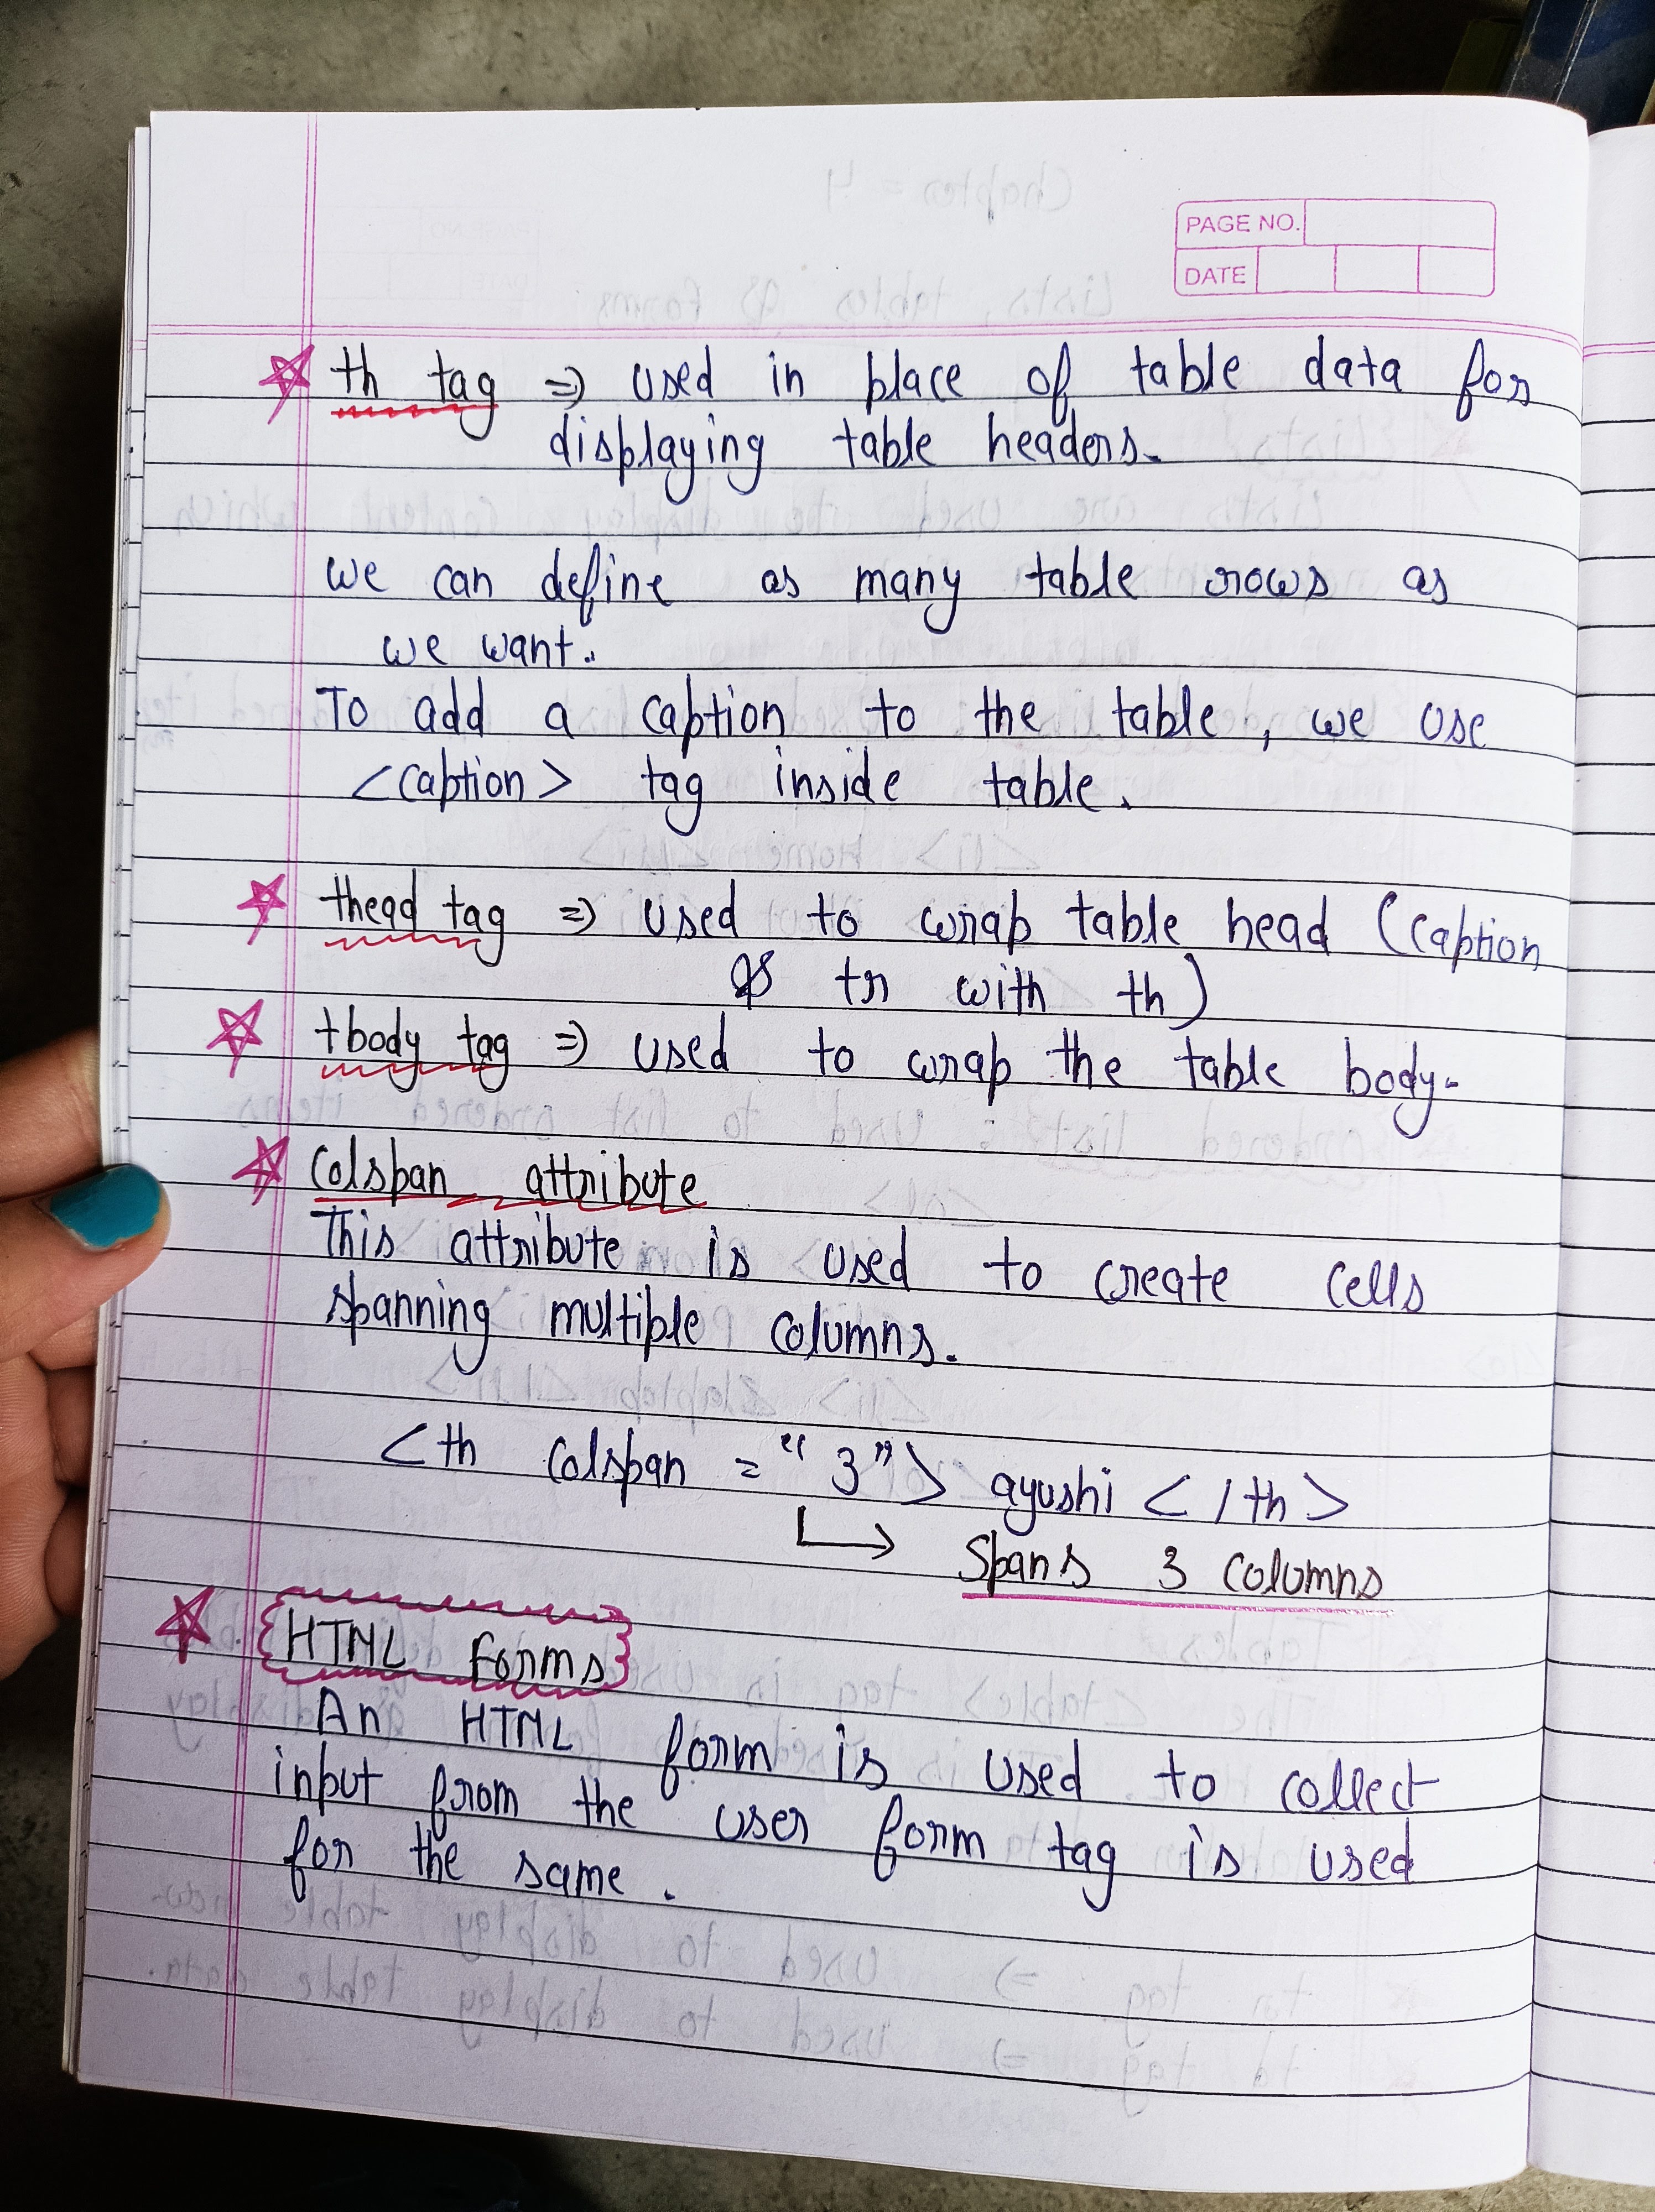 PAGE NO.
DATE
th tag => used in place of table data for
displaying table headers.
we can define as many table rows as
we want.
To add a caption to the table, we use
<caption> tag inside table.
thead tag => used to wrap table head (caption
& tr with th)
tbody tag => used to wrap the table body.
Colspan attribute
This attribute is used to create cells
spanning multiple columns.
<th colspan = "3"> ayushi </th>
Spans 3 columns
HTML Forms
An HTML form is used to collect
input from the user form tag is used
for the same.